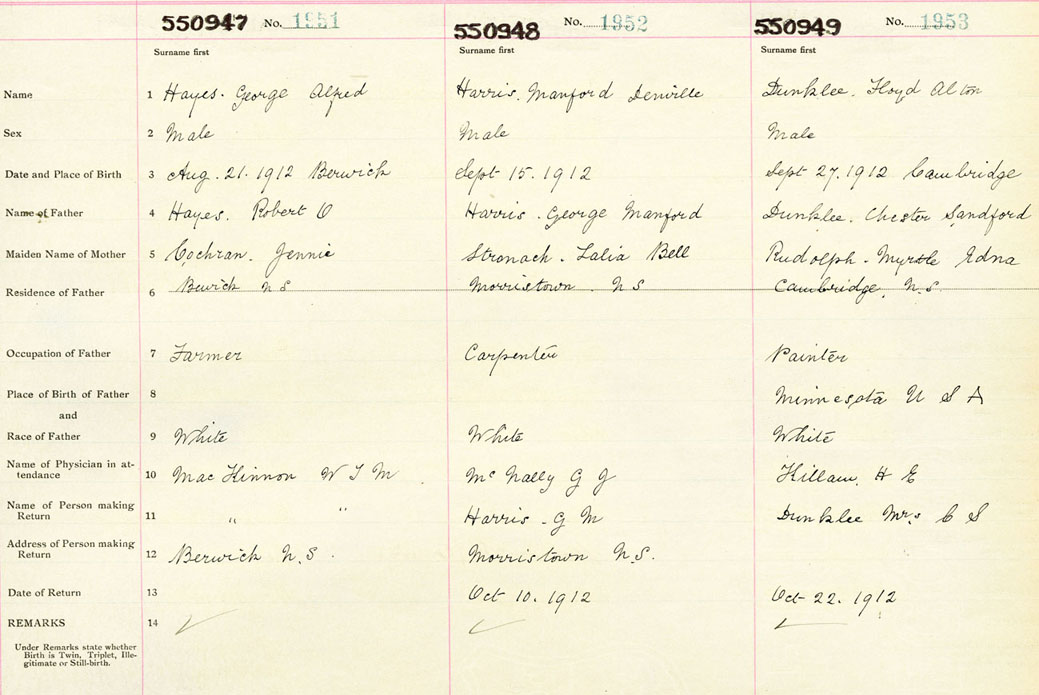 550947 No. 1951 550948 No. 1952 550949 No. 1953
Surname first Surname first Surname first
Name 1 Hayes. George Alfred Harris. Manford Denville Dunklee. Floyd Alton
Sex 2 Male Male Male
Date and Place of Birth 3 Aug. 21. 1912 Berwick Sept 15. 1912 Sept 27. 1912 Cambridge
Name of Father 4 Hayes. Robert O Harris. George Manford Dunklee. Chester Sandford
Maiden Name of Mother 5 Cochran. Jennie Stronach. Lalia Bell Rudolph. Myrtle Edna
Residence of Father 6 Bewick N S Morristown. N S Cambridge, N.S.
Occupation of Father 7 Farmer Carpenter Painter
Place of Birth of Father 8 Minnesota U S A
and
Race of Father 9 White White White
Name of Physician in at-
tendance 10 MacKinnon W J M McNally G J Killam, H E
Name of Person making
Return 11 " " Harris - G M Dunklee Mrs C S
Address of Person making
Return 12 Berwick N.S. Morristown N.S.
Date of Return 13 Oct 10. 1912 Oct 22. 1912
REMARKS 14
Under Remarks state whether
Birth is Twin, Triplet, Ille-
gitimate or Still-birth.